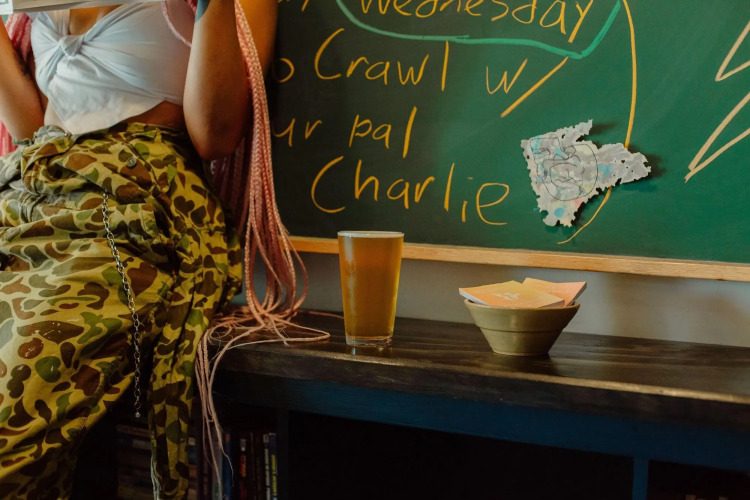 Wednesday
Crawl w/
pal
Charlie